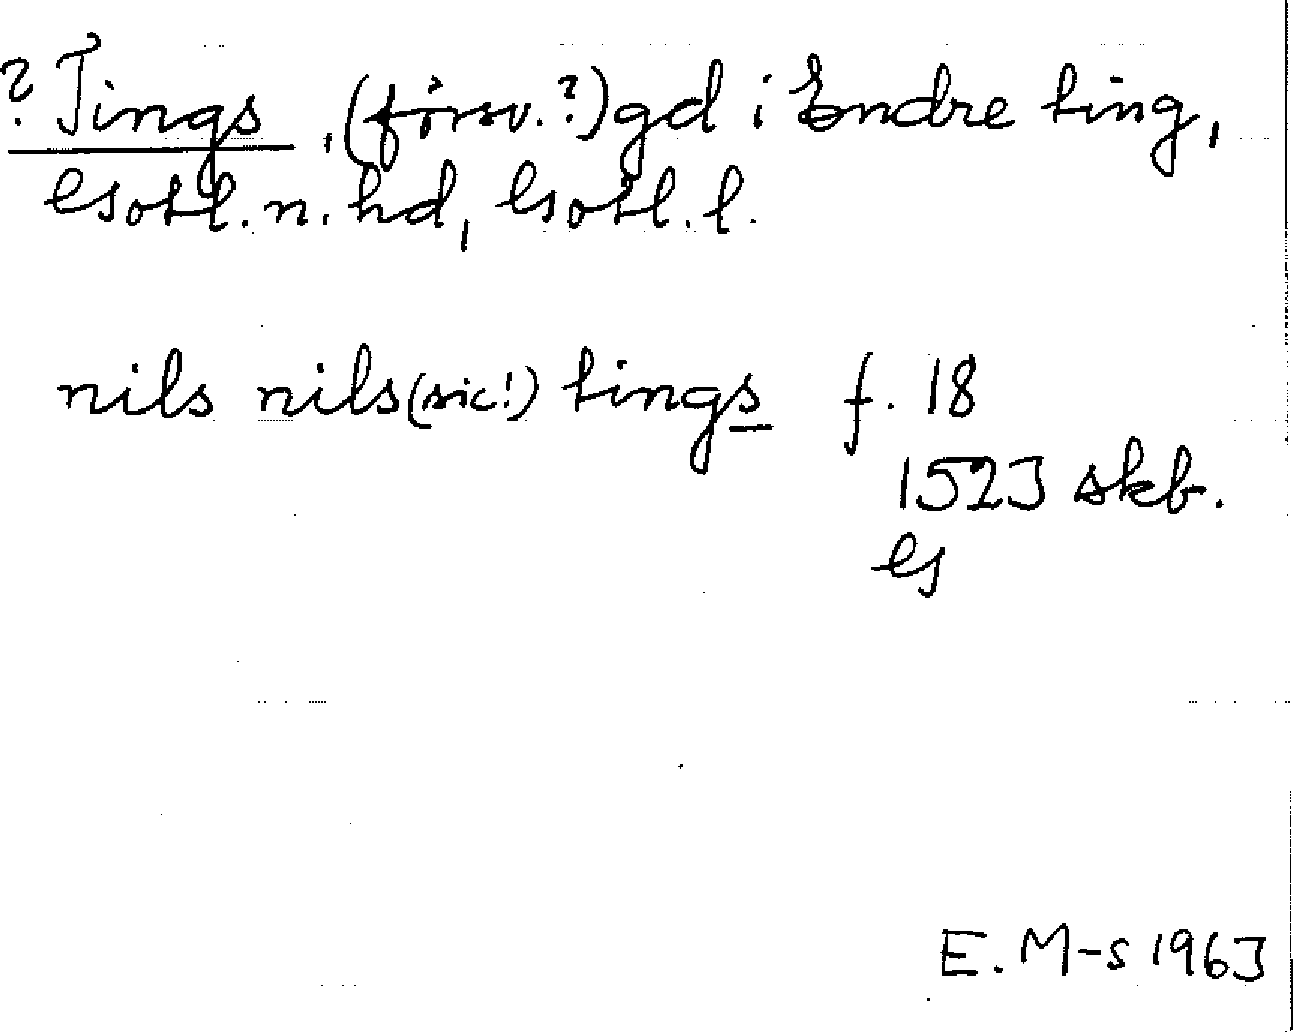 ? Tings, (försv.?) gd i Endre ting,
Gotl. n. hd, Gotl. l.
nils nils (sic!) tings f. 18
1523 skb.
G
E. M-s 1963